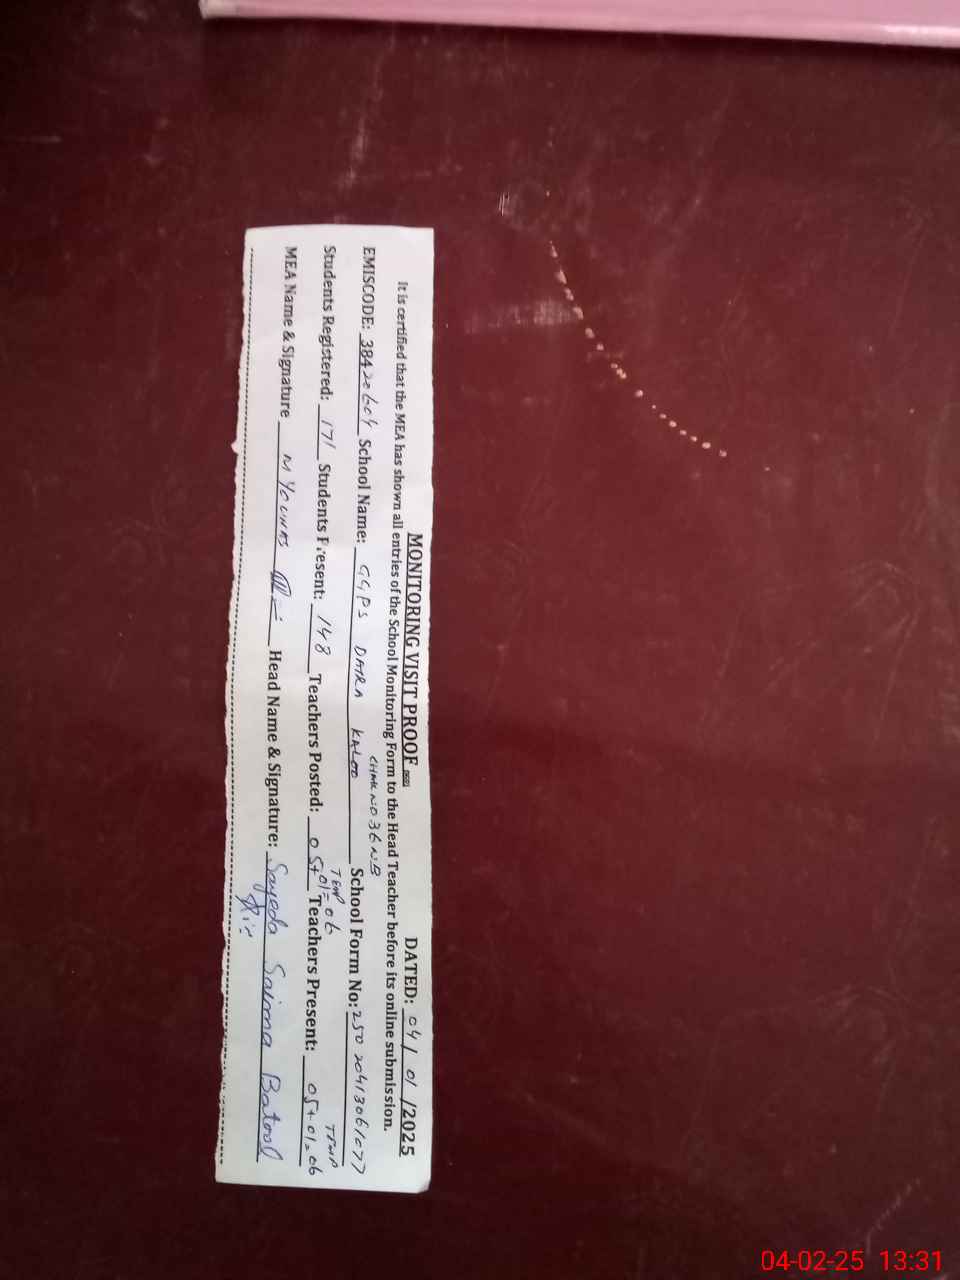 MONITORING VISIT PROOF DATED: 04/01/2025
It is certified that the MEA has shown all entries of the School Monitoring Form to the Head Teacher before its online submission.
CHAK NO 36 NB
EMISCODE: 38420604 School Name: GGPS DAIRA KALOO School Form No: 25020413061077
TEMP TEMP
Students Registered: 171 Students Present: 148 Teachers Posted: 05+01=06 Teachers Present: 05+01=06
MEA Name & Signature M YOUNAS Head Name & Signature: Sayeda Saima Batool
04-02-25 13:31